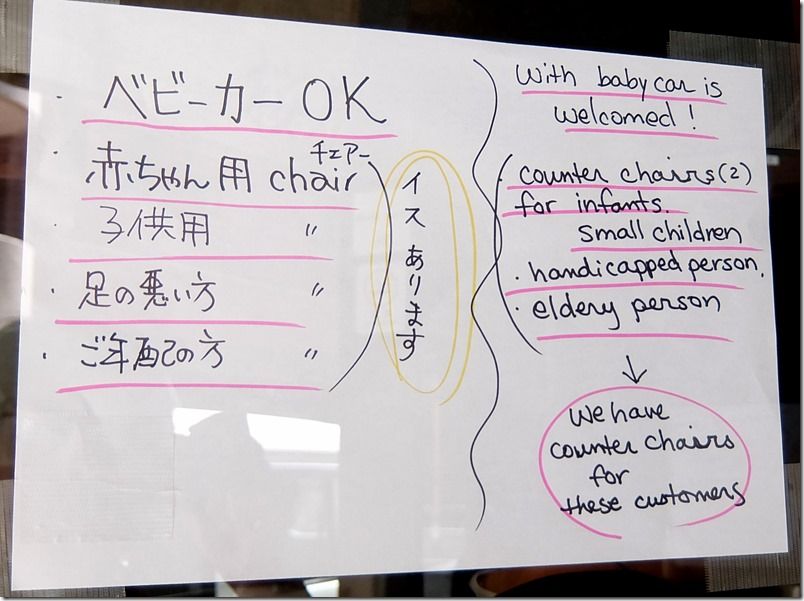 ・ベビーカー OK
・赤ちゃん用 chair
チェアー
・子供用 〃
・足の悪い方 〃
・ご年配の方 〃
イスあります
With baby car is
welcomed!
・counter chairs(2)
for infants.
small children
・handicapped person.
・eldery person
↓
We have
counter chairs
for
these customers